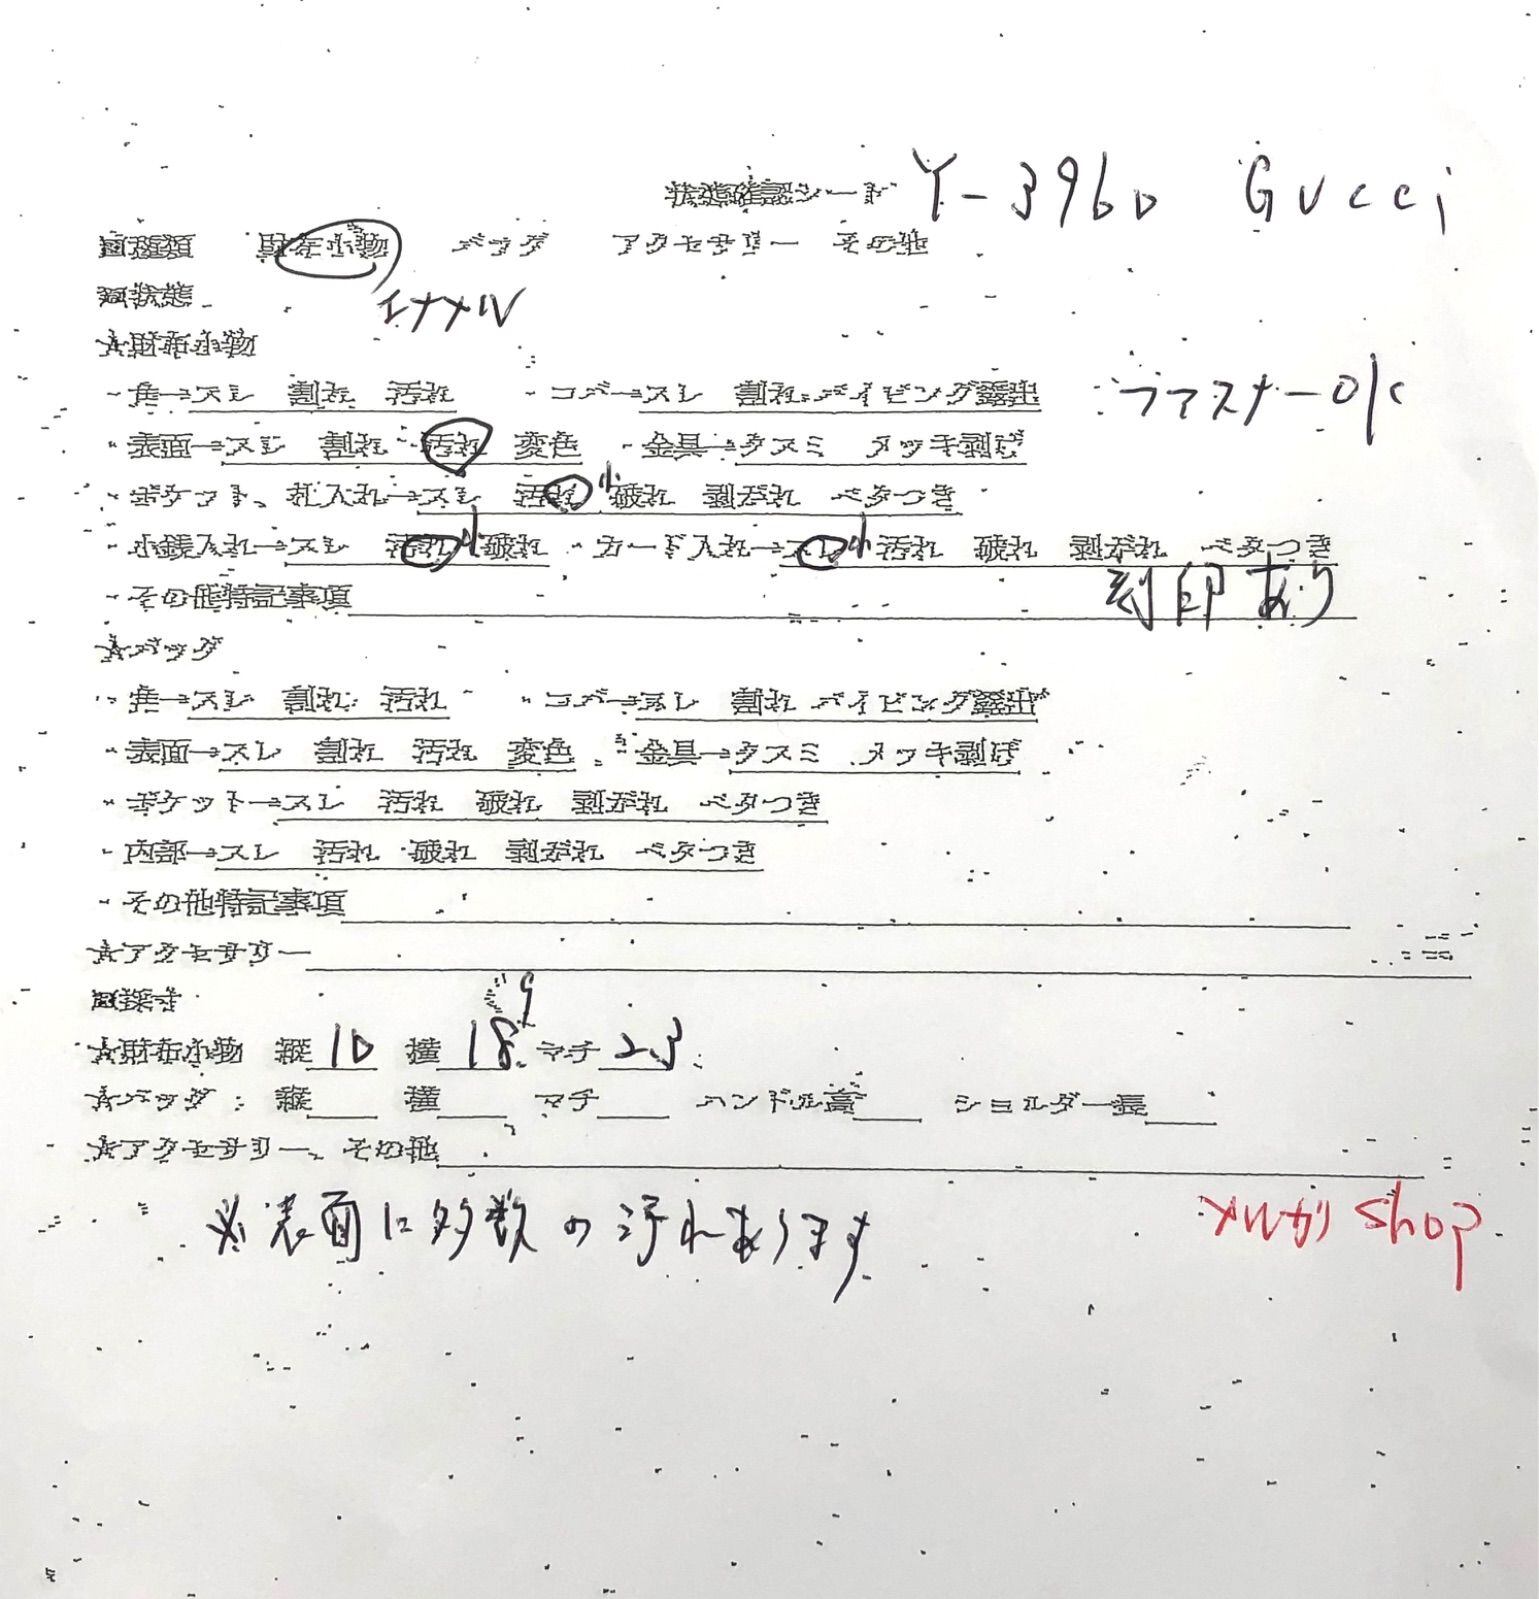 状態確認シート Y-3960 Gucci
■種類 財布小物 バッグ アクセサリー その他
■状態 エナメル
☆財布小物
・角→スレ 割れ 汚れ ・コバ→スレ 割れ パイピング露出 ファスナーOK
・表面→スレ 割れ 汚れ 変色 ・金具→クスミ メッキ剥げ
・ポケット、札入れ→スレ 汚れ 小 破れ 剥がれ ベタつき
・小銭入れ→スレ 汚れ 小 破れ ・カード入れ→スレ 小 汚れ 破れ 剥がれ ベタつき
・その他特記事項 刻印あり
☆バッグ
・角→スレ 割れ 汚れ ・コバ→スレ 割れ パイピング露出
・表面→スレ 割れ 汚れ 変色 ・金具→クスミ メッキ剥げ
・ポケット→スレ 汚れ 破れ 剥がれ ベタつき
・内部→スレ 汚れ 破れ 剥がれ ベタつき
・その他特記事項
☆アクセサリー
■採寸 9
☆財布小物 縦 10 横 18 マチ 2.3
☆バッグ 縦 横 マチ ハンドル高 ショルダー長
☆アクセサリー、その他
※表面に多数の汚れあります メルカリ shop